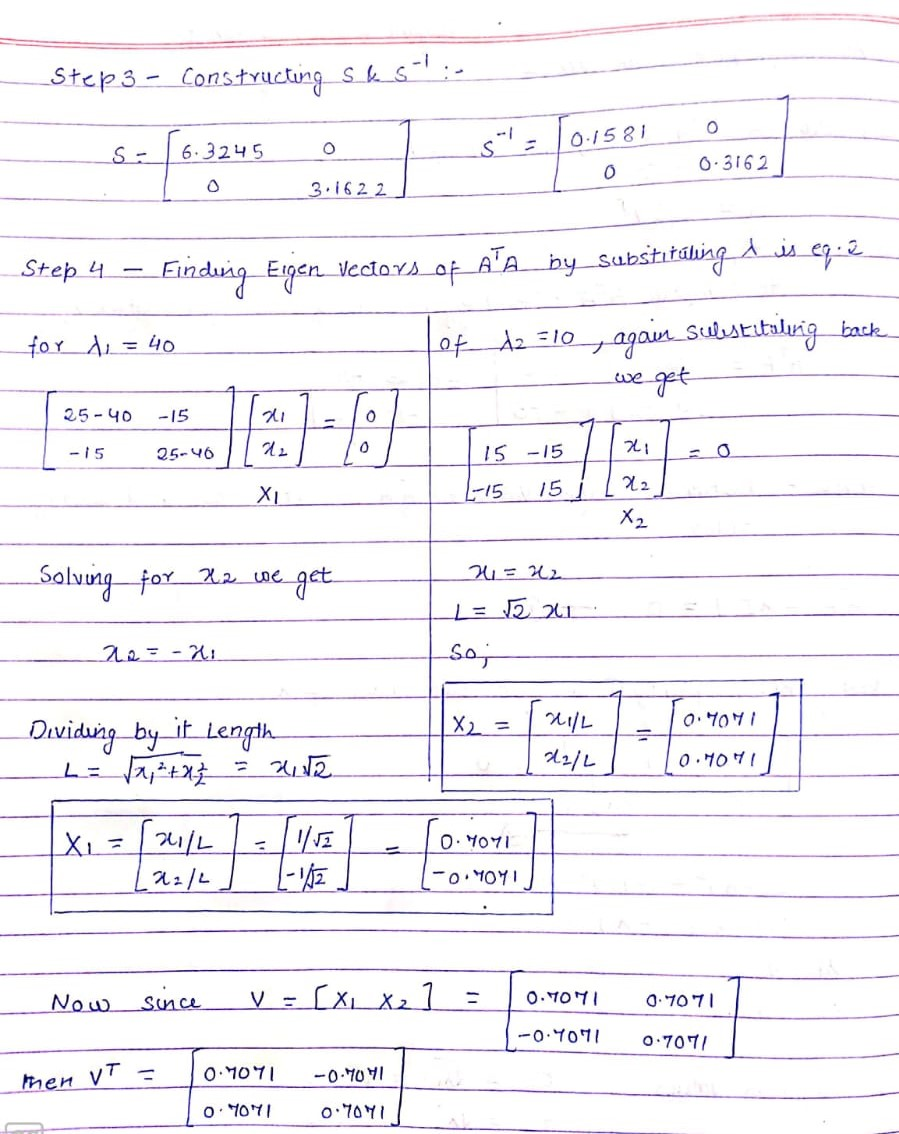 Step 3 - Constructing S & S⁻¹ :-
S = [ 6.3245 0 ; 0 3.1622 ] S⁻¹ = [ 0.1581 0 ; 0 0.3162 ]
Step 4 - Finding Eigen Vectors of AᵀA by substituting λ is eq. 2
for λ₁ = 40
[ 25-40 -15 ; -15 25-40 ] [ x₁ ; x₂ ] = [ 0 ; 0 ]
X₁
Solving for x₂ we get
x₂ = - x₁
Dividing by it Length
L = √x₁²+x₂² = x₁√2
X₁ = [ x₁/L ; x₂/L ] = [ 1/√2 ; -1/√2 ] = [ 0.7071 ; -0.7071 ]
of λ₂ = 10, again substituting back
we get
[ 15 -15 ; -15 15 ] [ x₁ ; x₂ ] = 0
X₂
x₁ = x₂
L = √2 x₁
So;
X₂ = [ x₁/L ; x₂/L ] = [ 0.7071 ; 0.7071 ]
Now since V = [X₁ X₂] = [ 0.7071 0.7071 ; -0.7071 0.7071 ]
then Vᵀ = [ 0.7071 -0.7071 ; 0.7071 0.7071 ]